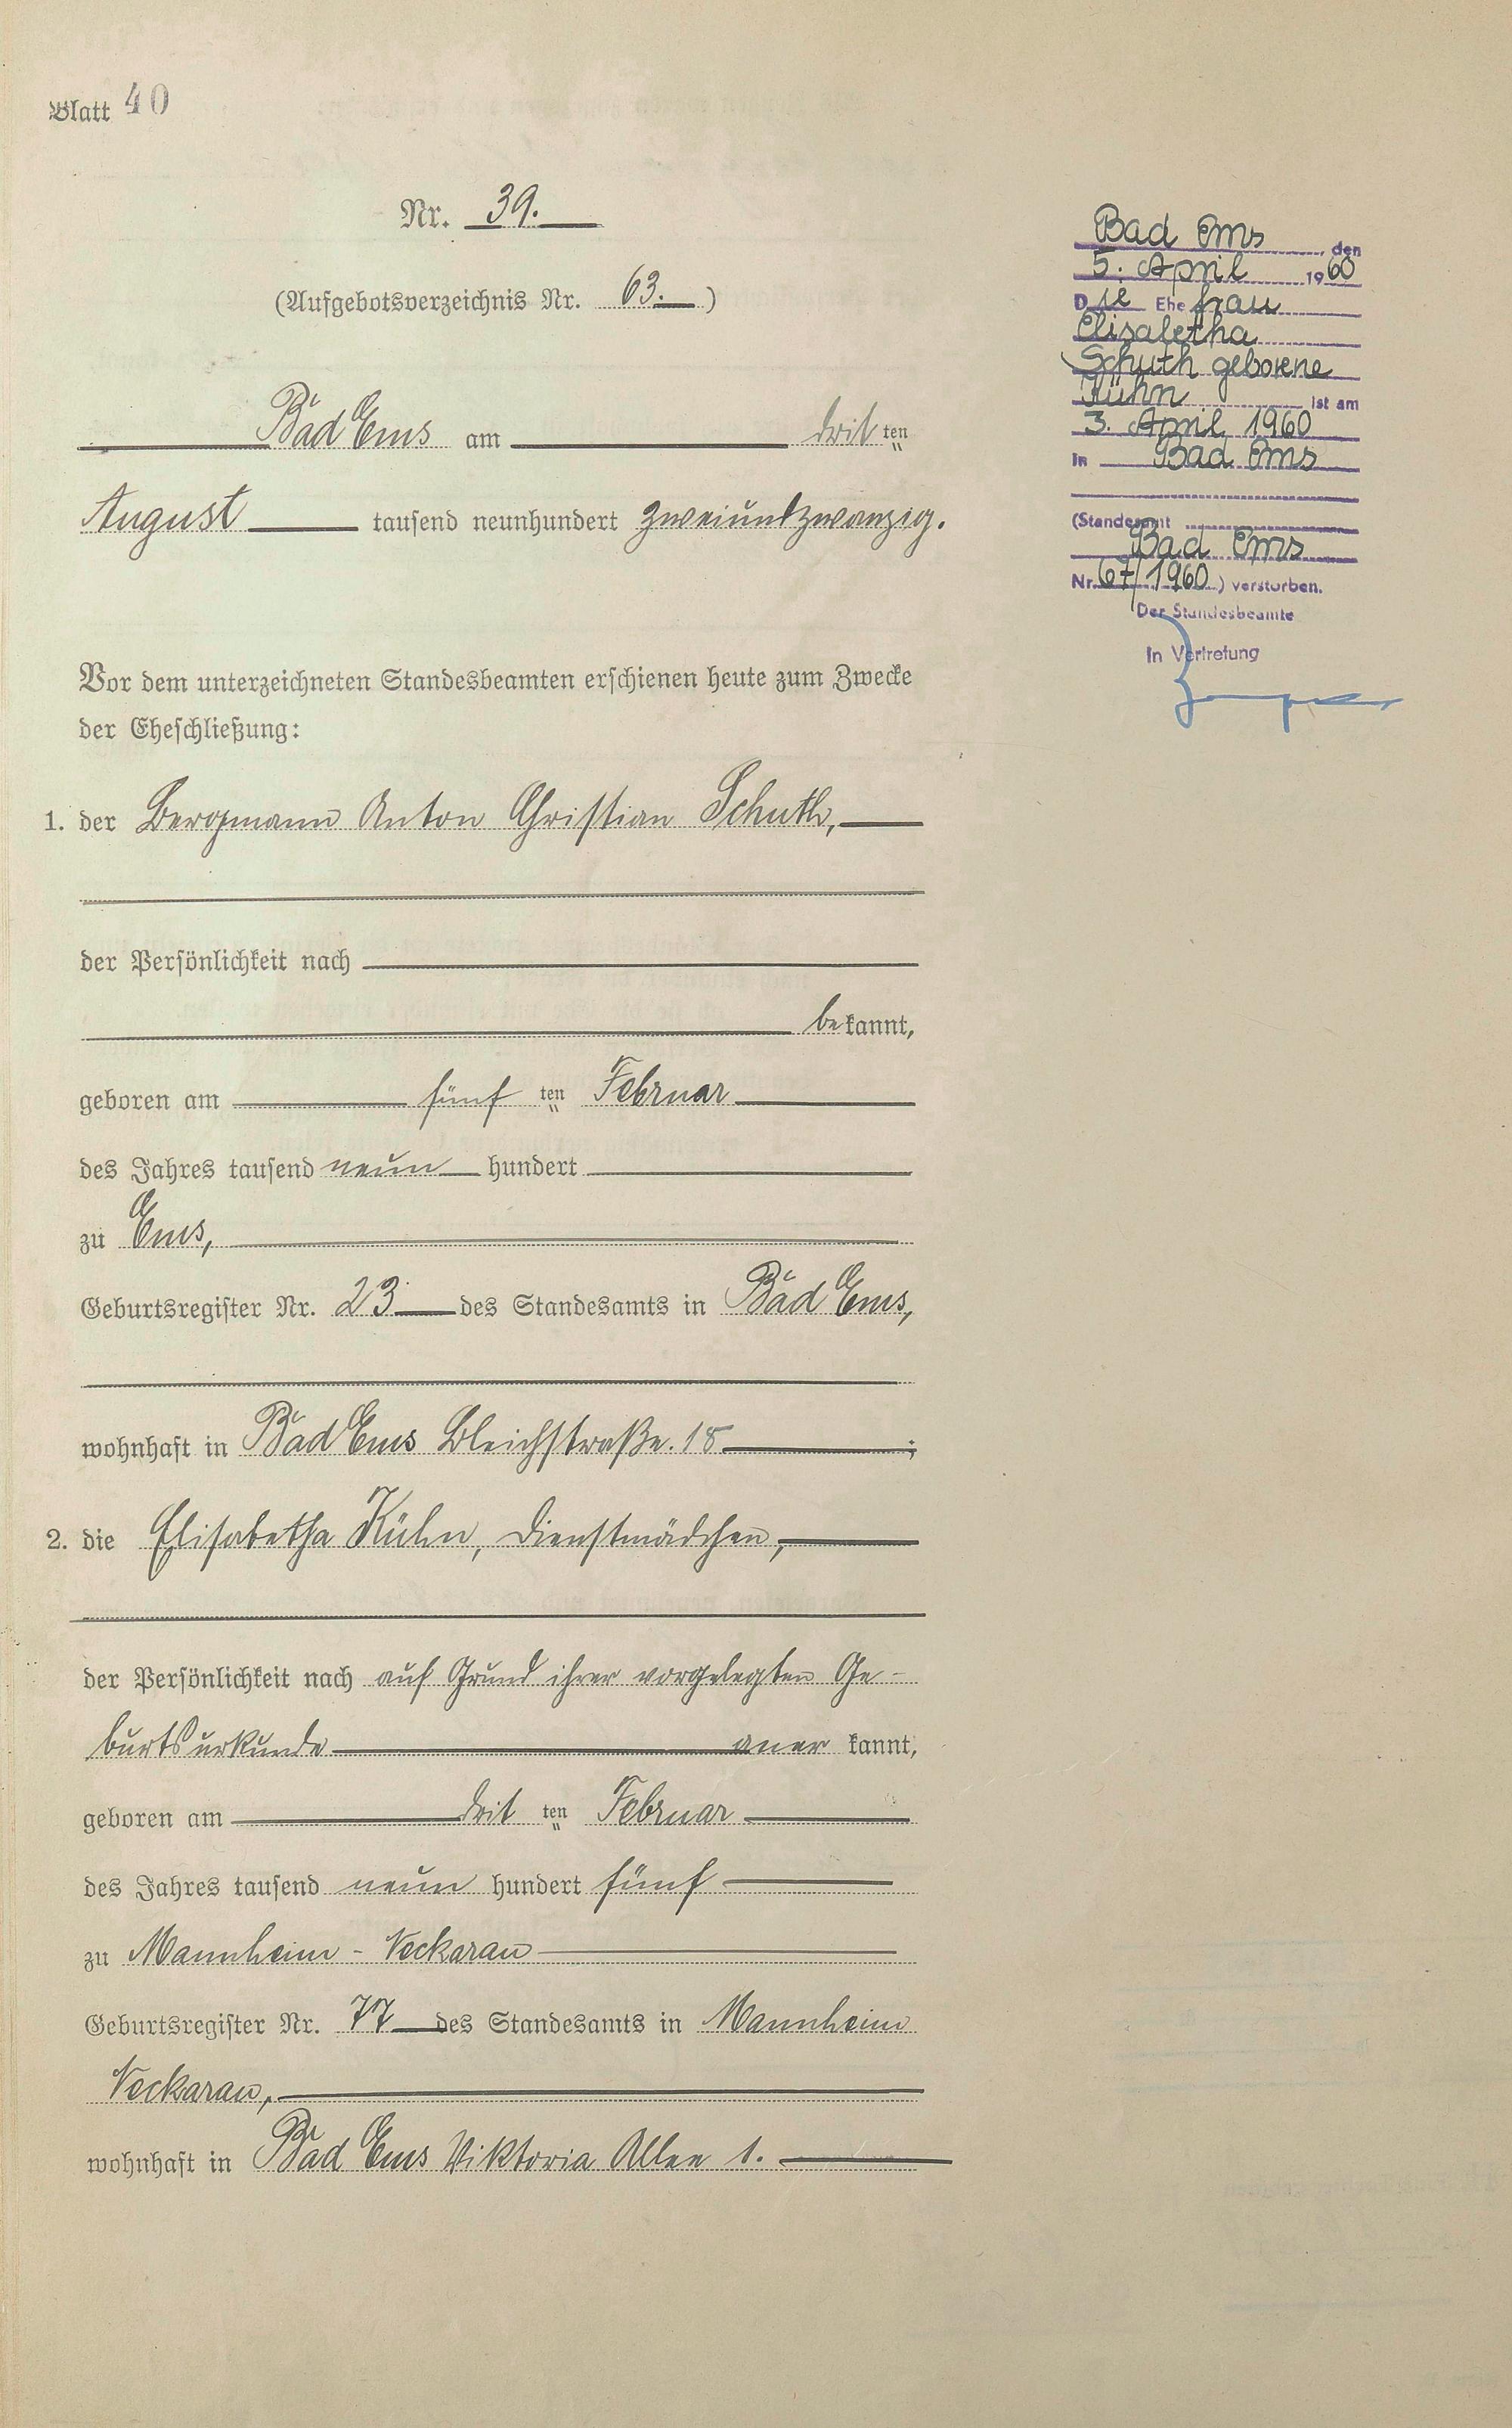 Blatt 40
Nr. 39.
(Aufgebotsverzeichnis Nr. 63.)
Bad Ems am drit ten
August tausend neunhundert zweiundzwanzig.
Vor dem unterzeichneten Standesbeamten erschienen heute zum Zwecke
der Eheschließung:
1. der Bergmann Anton Christian Schuth,
der Persönlichkeit nach
be kannt,
geboren am fünf ten Februar
des Jahres tausend neun hundert
zu Ems,
Geburtsregister Nr. 23 des Standesamts in Bad Ems,
wohnhaft in Bad Ems Bleichstraße. 18 ;
2. die Elisabetha Kühn, Dienstmädchen,
der Persönlichkeit nach auf Grund ihrer vorgelegten Ge-
burtsurkunde aner kannt,
geboren am drit ten Februar
des Jahres tausend neun hundert fünf
zu Mannheim - Neckarau
Geburtsregister Nr. 77 des Standesamts in Mannheim
Neckarau,
wohnhaft in Bad Ems Viktoria Allee 1.
Bad Ems, den
5. April 1960
Die Ehefrau
Elisabetha
Schuth geborene
Kühn ist am
3. April 1960
in Bad Ems
(Standesamt
Bad Ems
Nr. 67/1960) verstorben.
Der Standesbeamte
In Vertretung